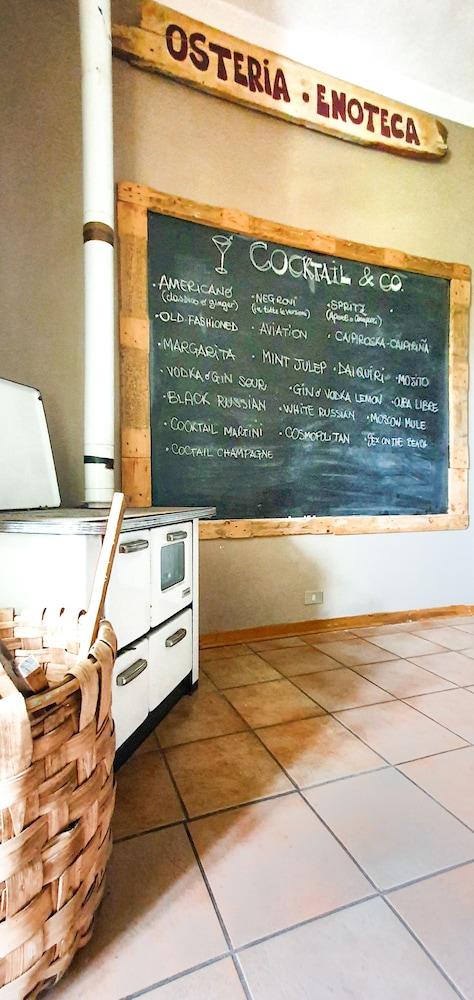 OSTERIA · ENOTECA
COCKTAIL & CO.
· AMERICANO · NEGRONI · SPRITZ
(classico o ginger) (in tutte le versioni) (Aperol o Campari)
· OLD FASHIONED · AVIATION · CAIPIROSKA-CAIPIRIÑA
· MARGARITA · MINT JULEP · DAIQUIRI · MOJITO
· VODKA o GIN SOUR · GIN o VODKA LEMON · CUBA LIBRE
· BLACK RUSSIAN · WHITE RUSSIAN · MOSCOW MULE
· COCKTAIL MARTINI · COSMOPOLITAN · SEX ON THE BEACH
· COCTAIL CHAMPAGNE